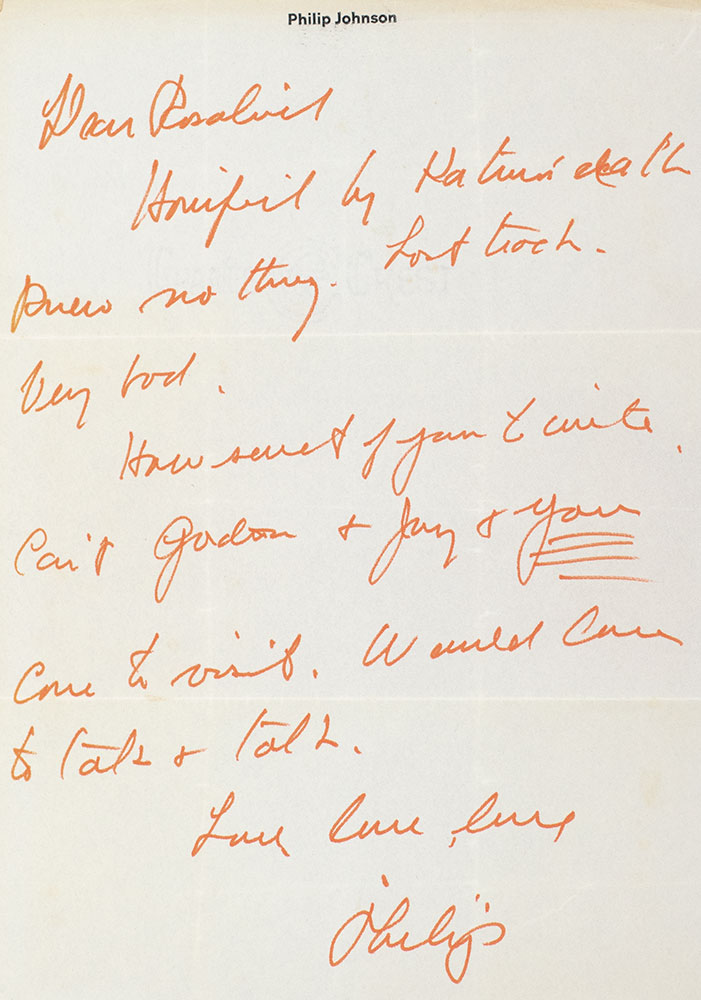 Philip Johnson
Dear Rosalind
Horrified by death
Knew nothing. Lost track.
Very bad.
How sweet of you to write.
Can't Gordon & Jay & you
come to visit. Would love
to talk & talk.
Love, love, love
Philip